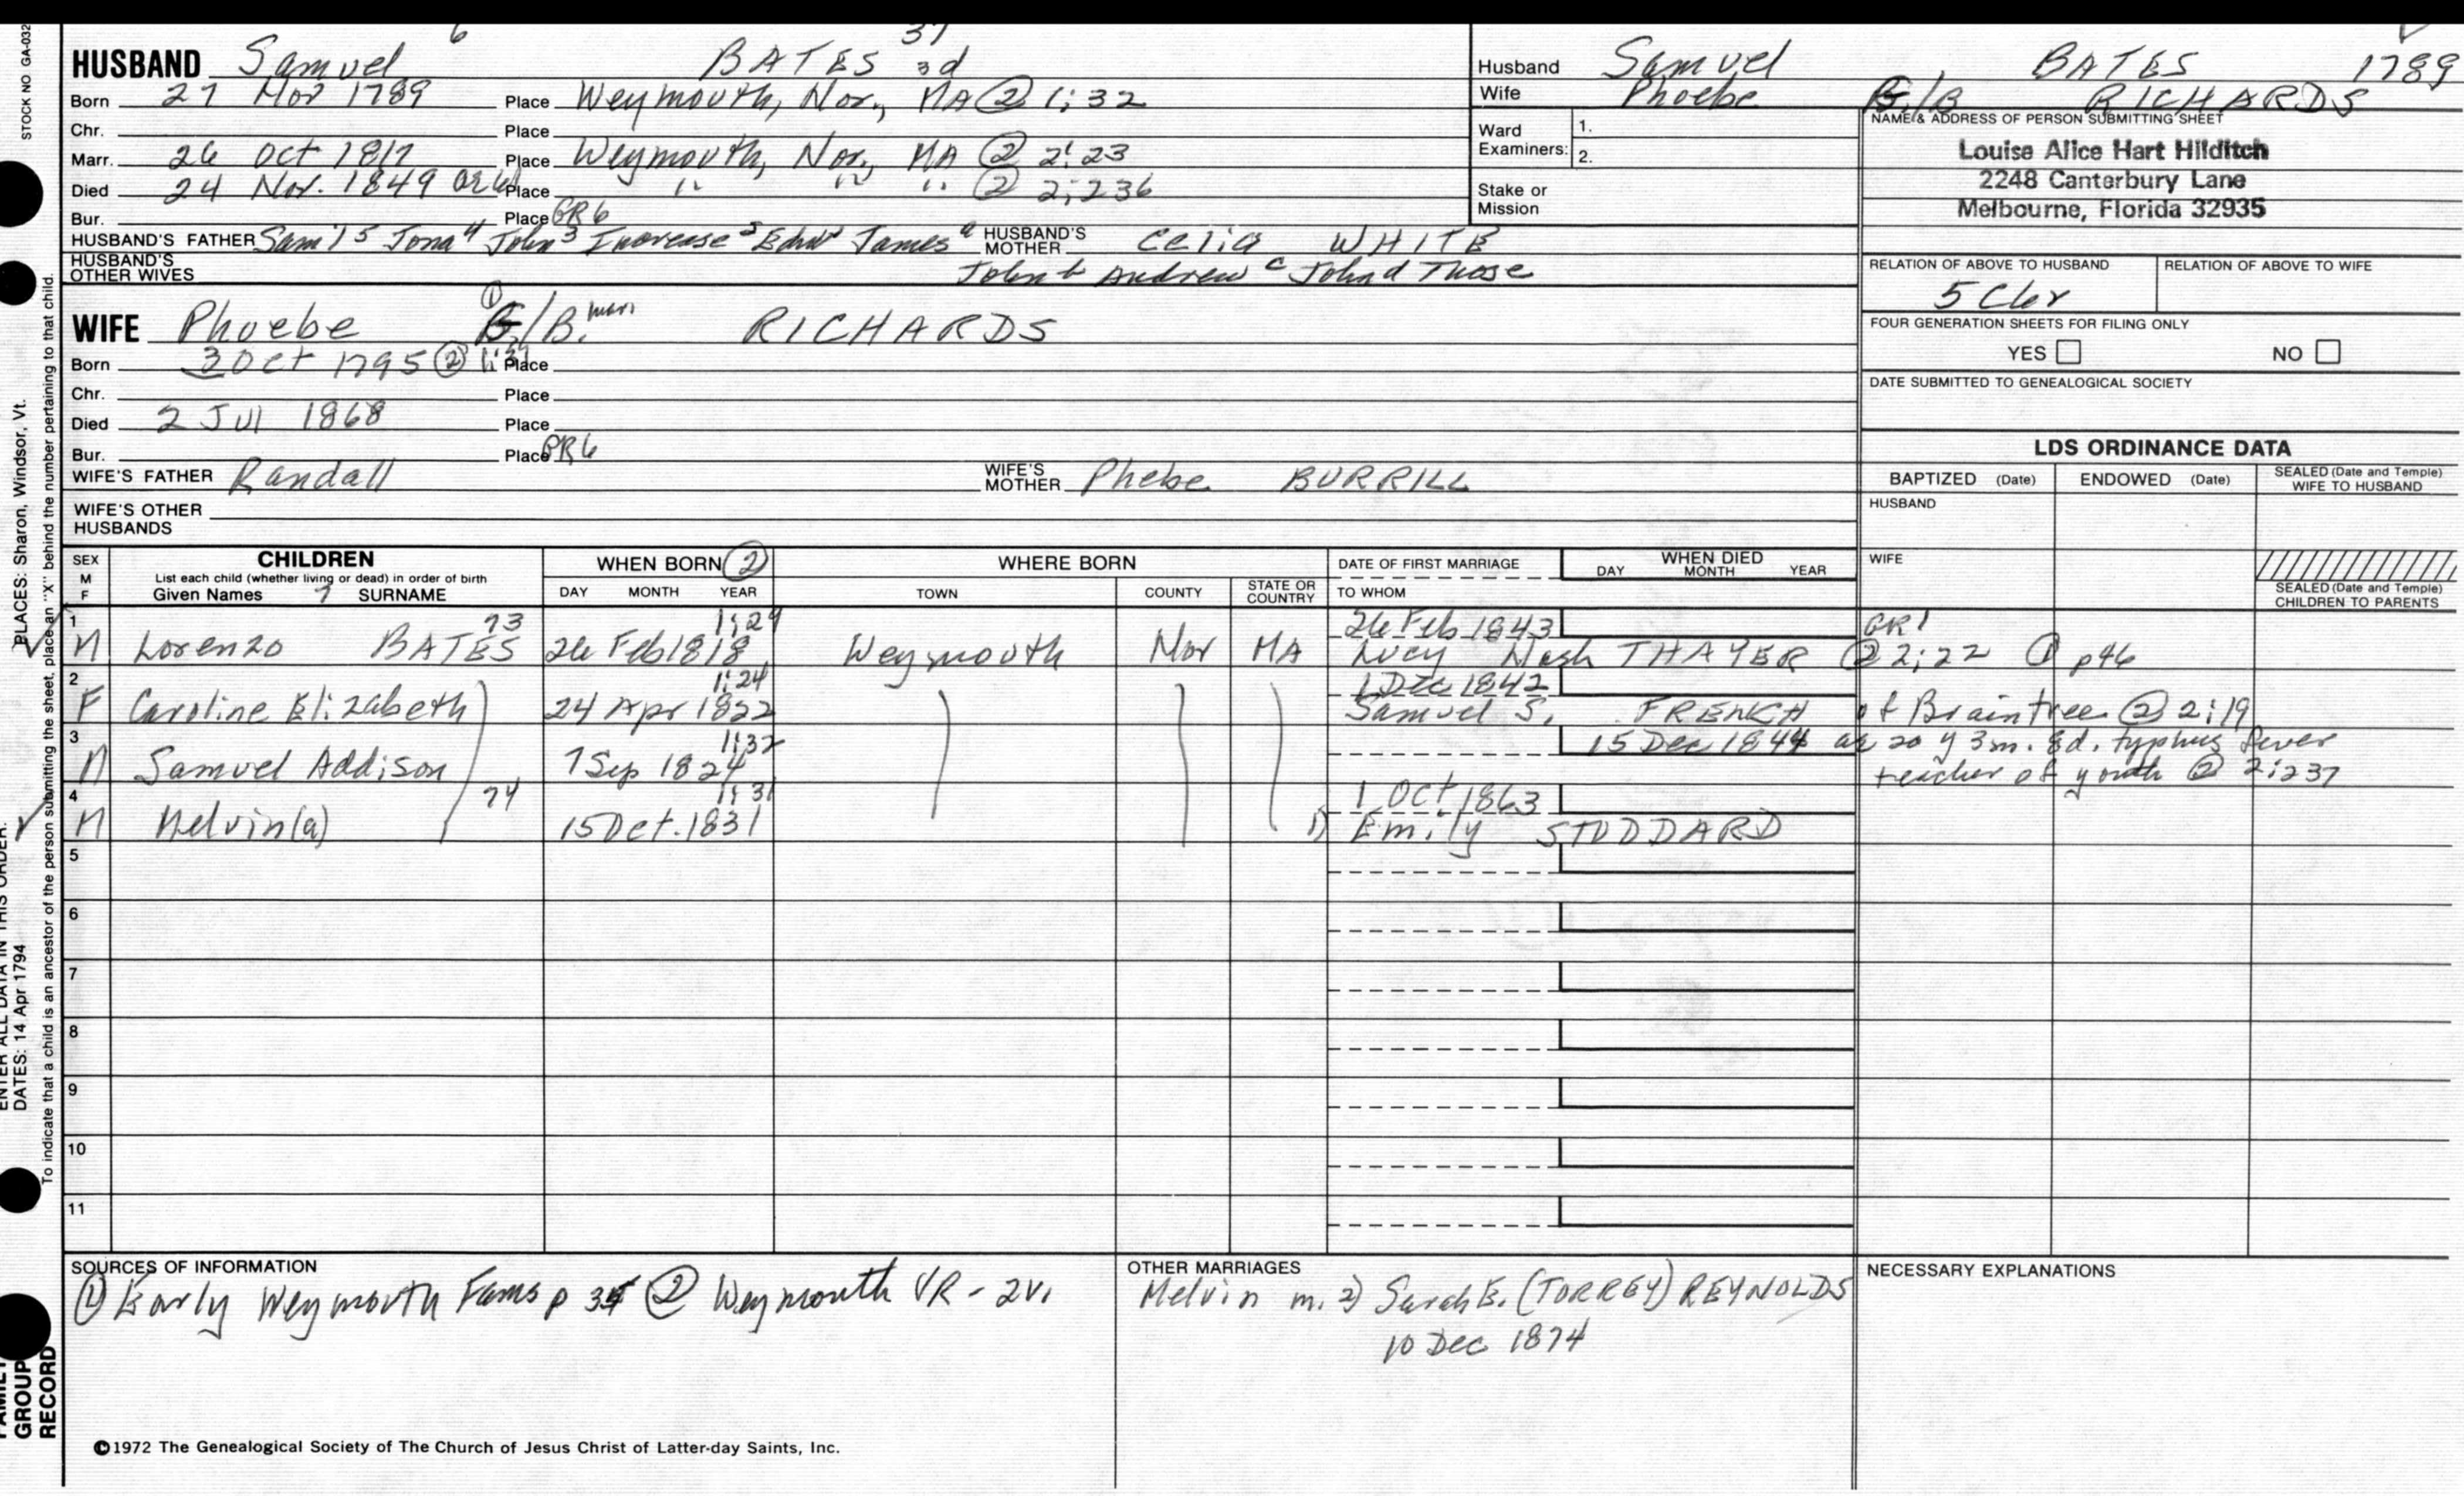 STOCK NO GA-032
PLACES: Sharon, Windsor, Vt.
ENTER ALL DATA IN THIS ORDER:
DATES: 14 Apr 1794
To indicate that a child is an ancestor of the person submitting the sheet, place an "X" behind the number pertaining to that child.
FAMILY
GROUP
RECORD
6 37
HUSBAND Samuel BATES 3d
Born 27 Mar 1789 Place Weymouth, Nor., MA @ 1:32
Chr. Place
Marr. 26 Oct 1817 Place Weymouth, Nor, MA @ 2:23
Died 24 Nov. 1849 Place " " " @ 2:236
Bur. Place GR6
HUSBAND'S FATHER Sam'l 5 Jona 4 John 3 Increase 2 Edwd James a HUSBAND'S MOTHER Celia WHITE
HUSBAND'S OTHER WIVES John b Andrew c John d Those
WIFE Phoebe ① G/B. RICHARDS
Born 3 Oct 1795 ② Place
Chr. Place
Died 2 Jul 1868 Place
Bur. Place GR6
WIFE'S FATHER Randall WIFE'S MOTHER Phebe BURRILL
WIFE'S OTHER HUSBANDS
Husband Samuel BATES 1789
Wife Phoebe G/B RICHARDS
Ward Examiners: 1.
2.
Stake or Mission
NAME & ADDRESS OF PERSON SUBMITTING SHEET
Louise Alice Hart Hilditch
2248 Canterbury Lane
Melbourne, Florida 32935
RELATION OF ABOVE TO HUSBAND RELATION OF ABOVE TO WIFE
5 C
FOUR GENERATION SHEETS FOR FILING ONLY
YES NO
DATE SUBMITTED TO GENEALOGICAL SOCIETY
LDS ORDINANCE DATA
BAPTIZED (Date) ENDOWED (Date) SEALED (Date and Temple) WIFE TO HUSBAND
HUSBAND
WIFE
SEALED (Date and Temple) CHILDREN TO PARENTS
SEX M F CHILDREN WHEN BORN ② WHERE BORN DATE OF FIRST MARRIAGE WHEN DIED
List each child (whether living or dead) in order of birth
Given Names 7 SURNAME DAY MONTH YEAR TOWN COUNTY STATE OR COUNTRY TO WHOM DAY MONTH YEAR
1 73 1:29 26 Feb 1843 GR1
M Lorenzo BATES 26 Feb 1818 Weymouth Nor MA Lucy Nash THAYER @ 2:22 ① p46
2 1:24 1 Dec 1842
F Caroline Elizabeth 24 Apr 1822 Samuel S. FRENCH of Braintree @ 2:19
3 1:32 15 Dec 1844 ae 20 y 3m. 8d. typhus fever
M Samuel Addison 7 Sep 1824 teacher of youth @ 2:237
4 74 1:31 1 Oct 1863
M Melvin(a) 15 Oct. 1831 1) Emily STODDARD
5
6
7
8
9
10
11
SOURCES OF INFORMATION
① Early Weymouth Fams p ② Weymouth VR - 2v.
OTHER MARRIAGES
Melvin m. 2) Sarah E. (TORREY) REYNOLDS
10 Dec 1874
NECESSARY EXPLANATIONS
©1972 The Genealogical Society of The Church of Jesus Christ of Latter-day Saints, Inc.